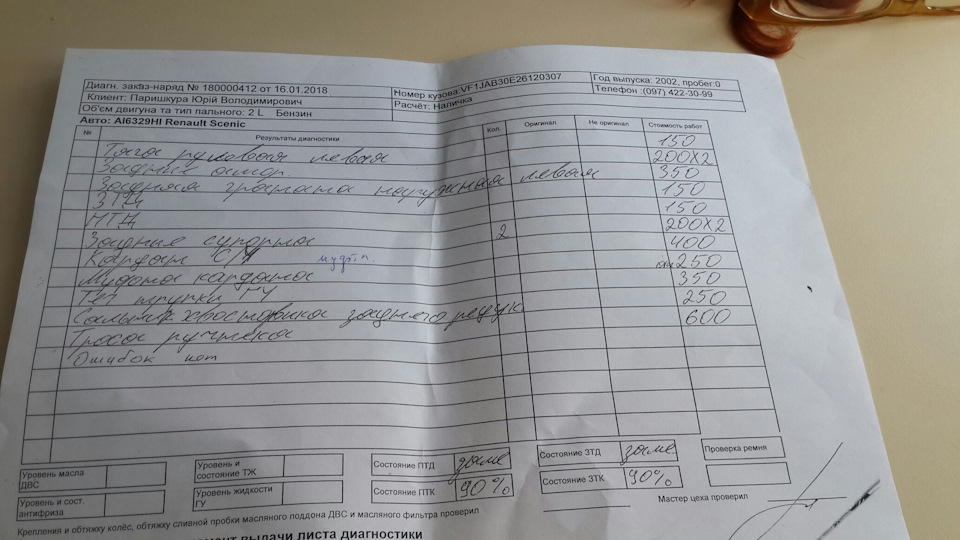 Диагн. заказ-наряд № 180000412 от 16.01.2018
Номер кузова:VF1JAB30E26120307
Год выпуска: 2002, пробег:0
Клиент: Паришкура Юрій Володимирович
Расчёт: Наличка
Телефон :(097) 422-30-99
Об'єм двигуна та тип пального: 2 L Бензин
Авто: AI6329HI Renault Scenic
№ Результаты диагностики Кол. Оригинал Не оригинал Стоимость работ
Тяга рулевая левая 150
Задние аморт. 200X2
Задняя граната наружная левая 350
ЗТД 150
НТД 150
Задние супорта 2 200X2
Кардан С/У 400
Муфта кардана 250
Теч трупки ГУ 350
Сальник хвостовика заднего редук. 250
Троса ручника 600
Ошибок нет
Уровень масла ДВС
Уровень и состояние ТЖ
Состояние ПТД
Состояние ЗТД
Проверка ремня
Уровень и сост. антифриза
Уровень жидкости ГУ
Состояние ПТК 90%
Состояние ЗТК 90%
Мастер цеха проверил
Крепления и обтяжку колёс, обтяжку сливной пробки масляного поддона ДВС и масляного фильтра проверил
выдачи листа диагностики